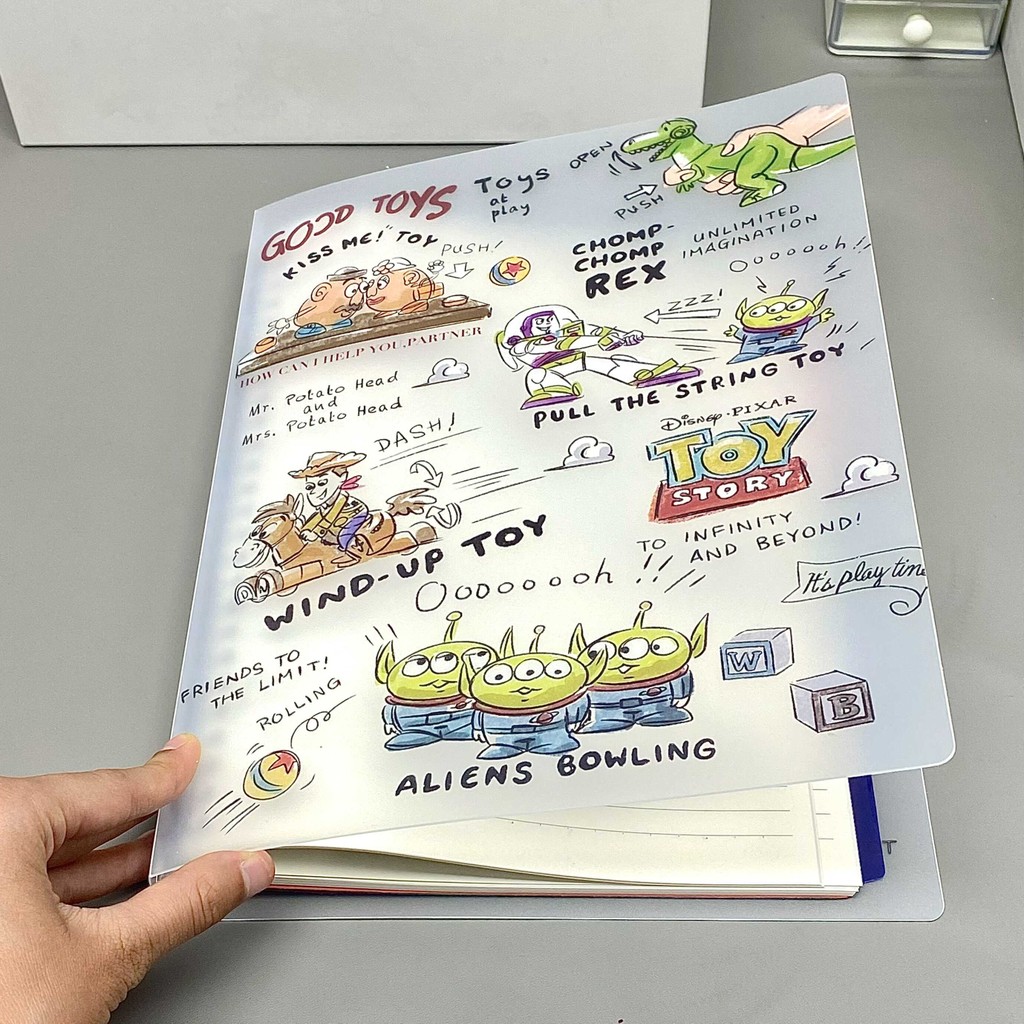 GOOD TOYS
Toys
at
play
OPEN
PUSH
KISS ME!" TOY
PUSH!
CHOMP-
CHOMP
REX
UNLIMITED
IMAGINATION
Oooooooh!!
ZZZ!
HOW CAN I HELP YOU,PARTNER
PULL THE STRING TOY
Mr. Potato Head
and
Mrs. Potato Head
Disney·PIXAR
TOY
STORY
DASH!
WIND-UP TOY
TO INFINITY
AND BEYOND!
Oooooooh!!
It's play time
FRIENDS TO
THE LIMIT!
ROLLING
W
B
ALIENS BOWLING
T